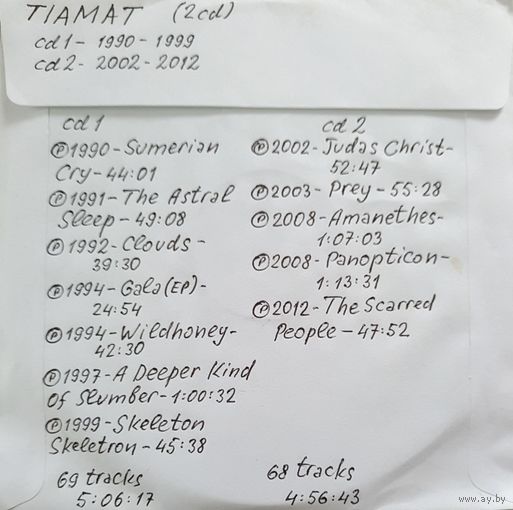 TIAMAT (2cd)
cd1 - 1990 - 1999
cd2 - 2002 - 2012
cd1
Ⓟ1990 - Sumerian
Cry - 44:01
Ⓟ1991 - The Astral
Sleep - 49:08
Ⓟ1992 - Clouds -
39:30
Ⓟ1994 - Gala (EP) -
24:54
Ⓟ1994 - Wildhoney -
42:30
Ⓟ1997 - A Deeper Kind
Of Slumber - 1:00:32
Ⓟ1999 - Skeleton
Skeletron - 45:38
69 tracks
5:06:17
cd2
Ⓟ2002 - Judas Christ -
52:47
Ⓟ2003 - Prey - 55:28
Ⓟ2008 - Amanethes -
1:07:03
Ⓟ2008 - Panopticon -
1:13:31
Ⓟ2012 - The Scarred
People - 47:52
68 tracks
4:56:43
www.ay.by